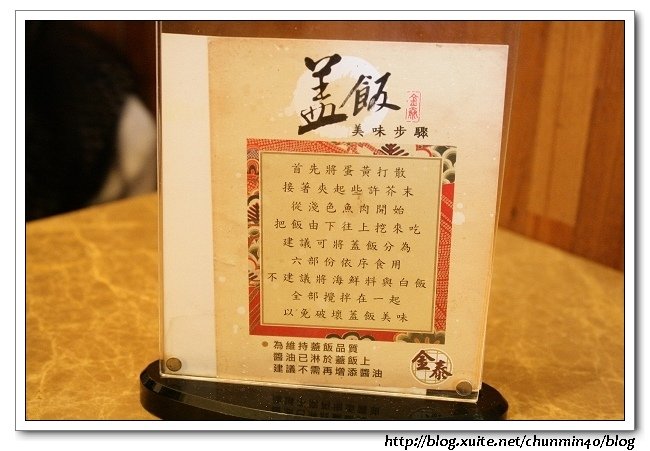 蓋飯
美味步驟
首先將蛋黃打散
接著夾起些許芥末
從淺色魚肉開始
把飯由下往上挖來吃
建議可將蓋飯分為
六部份依序食用
不建議將海鮮料與白飯
全部攪拌在一起
以免破壞蓋飯美味
為維持蓋飯品質
醬油已淋於蓋飯上
建議不需再增添醬油
金泰
http://blog.xuite.net/chunmin40/blog